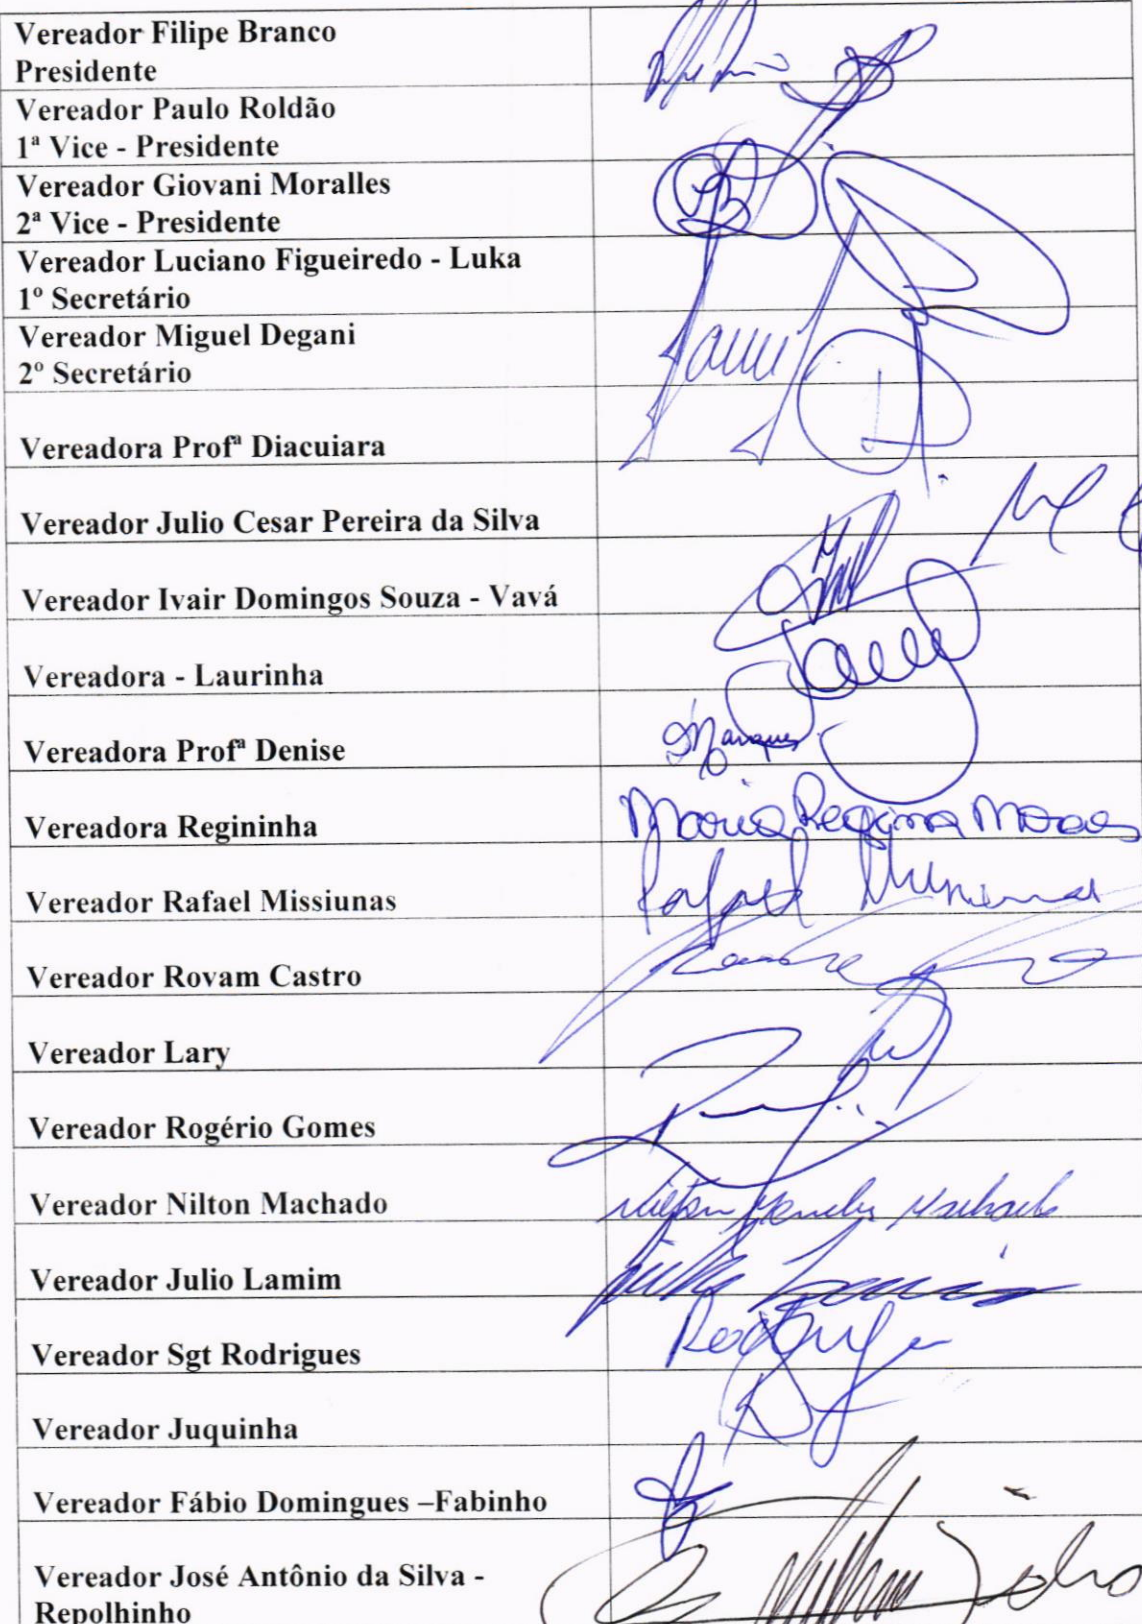 Vereador Filipe Branco
Presidente
Vereador Paulo Roldão
1ª Vice - Presidente
Vereador Giovani Moralles
2ª Vice - Presidente
Vereador Luciano Figueiredo - Luka
1º Secretário
Vereador Miguel Degani
2º Secretário
Vereadora Profª Diacuiara
Vereador Julio Cesar Pereira da Silva
Vereador Ivair Domingos Souza - Vavá
Vereadora - Laurinha
Vereadora Profª Denise
Marques
Vereadora Regininha
Maria Regina Moraes
Vereador Rafael Missiunas
Rafael Missiunas
Vereador Rovam Castro
Vereador Lary
Vereador Rogério Gomes
Vereador Nilton Machado
Nilton Mendes Machado
Vereador Julio Lamim
Julio Lamim
Vereador Sgt Rodrigues
Vereador Juquinha
Vereador Fábio Domingues –Fabinho
Vereador José Antônio da Silva -
Repolhinho